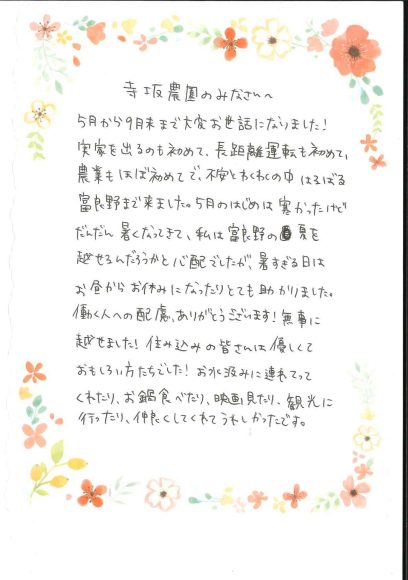 寺坂農園のみなさんへ
5月から9月末まで大変お世話になりました!
実家を出るのも初めて、長距離運転も初めて、
農業もほぼ初めてで、不安とわくわくの中 はるばる
富良野まで来ました。5月のはじめは 寒かったけど
だんだん 暑くなってきて、私は富良野の夏を
越せるんだろうかと心配でしたが、暑すぎる日は
お昼からお休みになったりとても助かりました。
働く人への配慮、ありがとうございます!無事に
越せました!住み込みの皆さんは優しくて
おもしろい方たちでした!お水汲みに連れてって
くれたり、お鍋食べたり、映画見たり、観光に
行ったり、仲良くしてくれてうれしかったです。